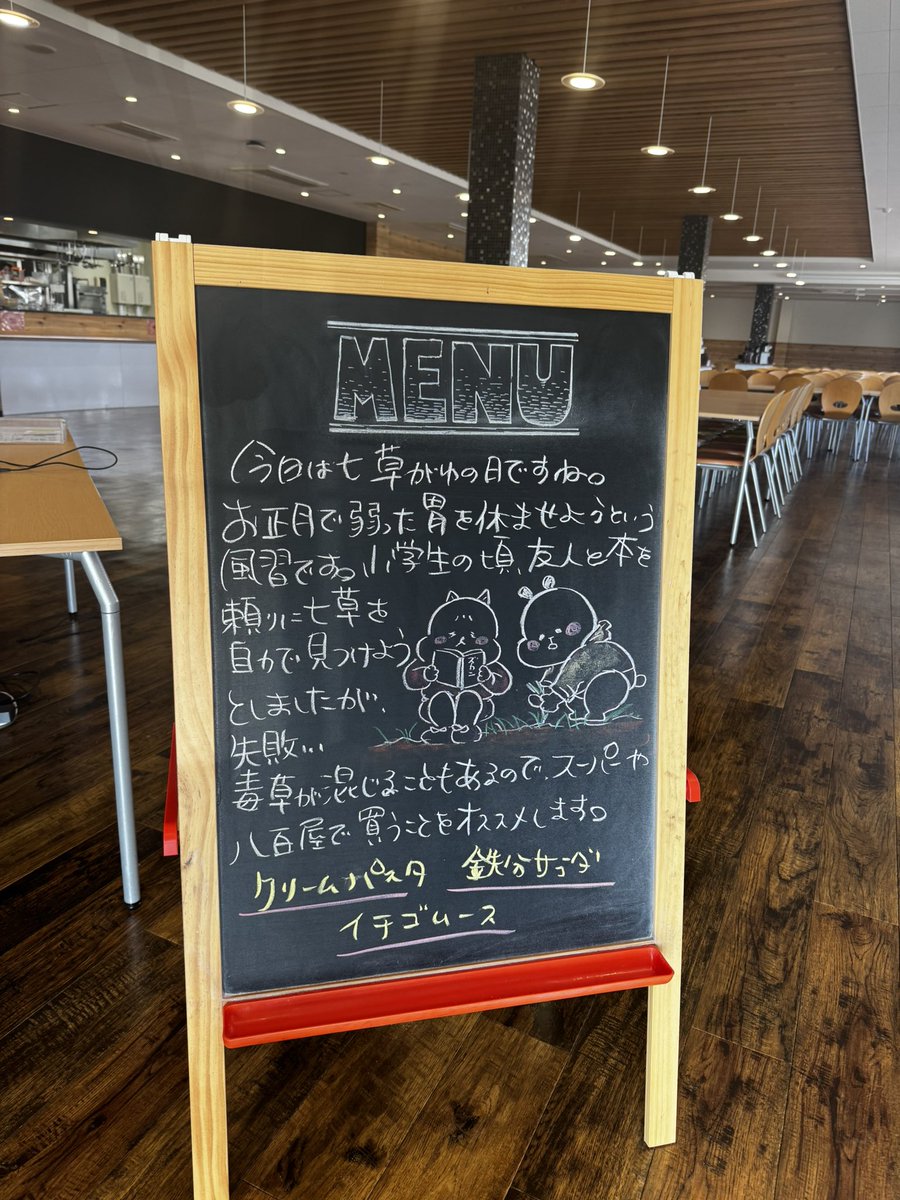 MENU
今日は七草がゆの日ですね。
お正月で弱った胃を休ませようという
風習です。小学生の頃、友人と本を
頼りに七草を
自力で見つけよう
としましたが、
失敗...
毒草が混じることもあるので、スーパーや
八百屋で買うことをオススメします。
クリームパスタ 鉄分サラダ
イチゴムース
ズカン